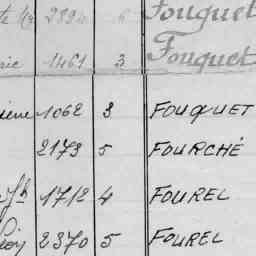 2824 6 Fouquet
1461 3 Fouquet
1062 3 FOUQUET
2173 5 FOURCHÉ
1712 4 FOUREL
2370 5 FOUREL